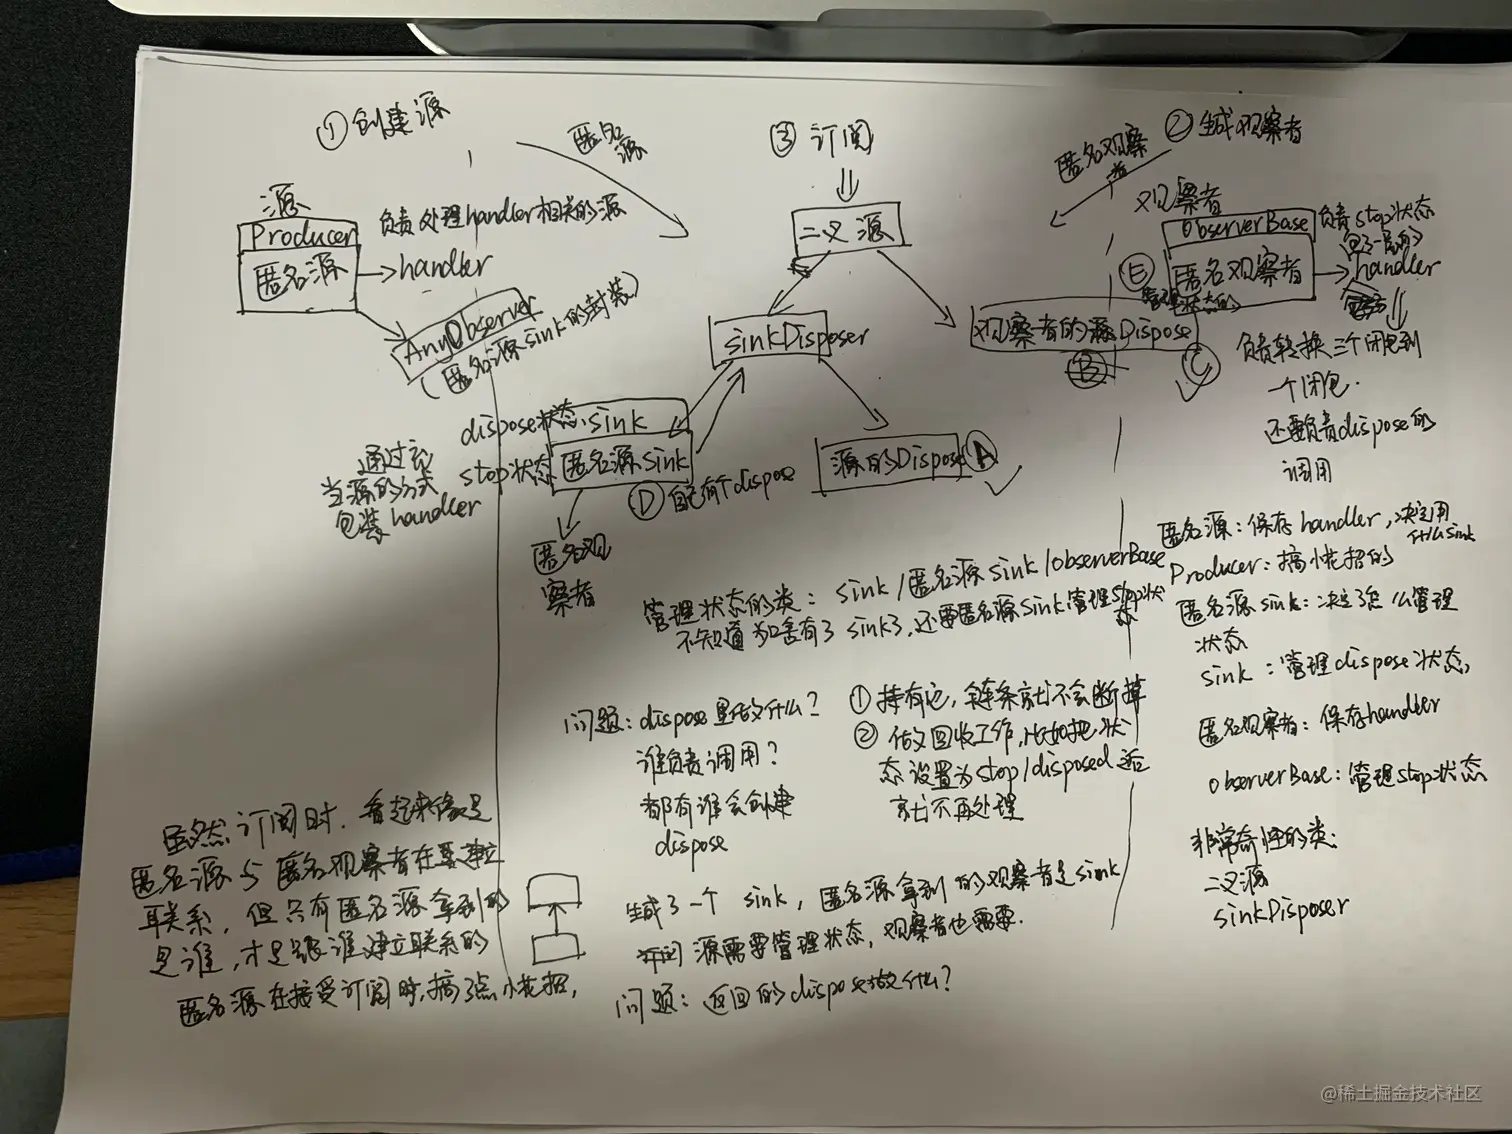 ①创建源
匿名源
③订阅
匿名观察者
②生成观察者
源
Producer
匿名源
负责处理handler相关的源
handler
AnyObserver
(匿名源sink的封装)
二叉源
sinkDisposer
观察者的源Dispose
B
C
源的Dispose
A
观察者
ObserverBase
匿名观察者
E
管理状态的
负责stop状态
包了一层的
handler
负责转换三个闭包到
一个闭包.
还要负责dispose的
调用
dispose状态
stop状态
sink
匿名源sink
D
自己有个dispose
通过议
当源的方式
包装handler
匿名观
察者
管理状态的类: sink/匿名源sink/observerBase
不知道为啥有了sink了,还要匿名源sink管理stop状
态
匿名源:保存handler,决定用
什么sink
Producer:搞小花招的
匿名源sink:决定了怎么管理
状态
sink:管理dispose状态,
匿名观察者:保存handler
observerBase:管理stop状态
非常奇怪的类:
二叉源
sinkDisposer
问题:dispose里做什么?
谁负责调用?
都有谁会创建
dispose
①持有它,链条就不会断掉
②做回收工作,比如把状
态设置为stop/disposed后
就不再处理
虽然订阅时,看起来像是
匿名源与匿名观察者在建立
联系,但只有匿名源拿到的
是谁,才是跟谁建立联系的
匿名源在接受订阅时,搞了点小花招,
生成了一个sink,匿名源拿到的观察者是sink
源需要管理状态,观察者也需要.
问题:返回的dispose做什么?
@稀土掘金技术社区